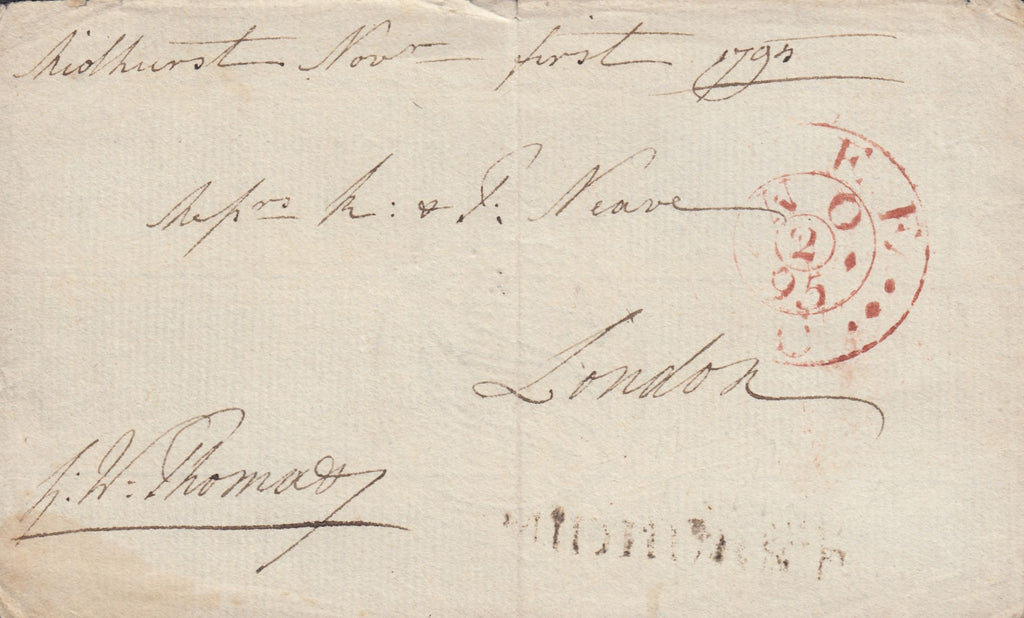 Midhurst Novr first 1795
Messrs R: & T: Neave
London
G: W: Thomas
FREE
NO
2
95